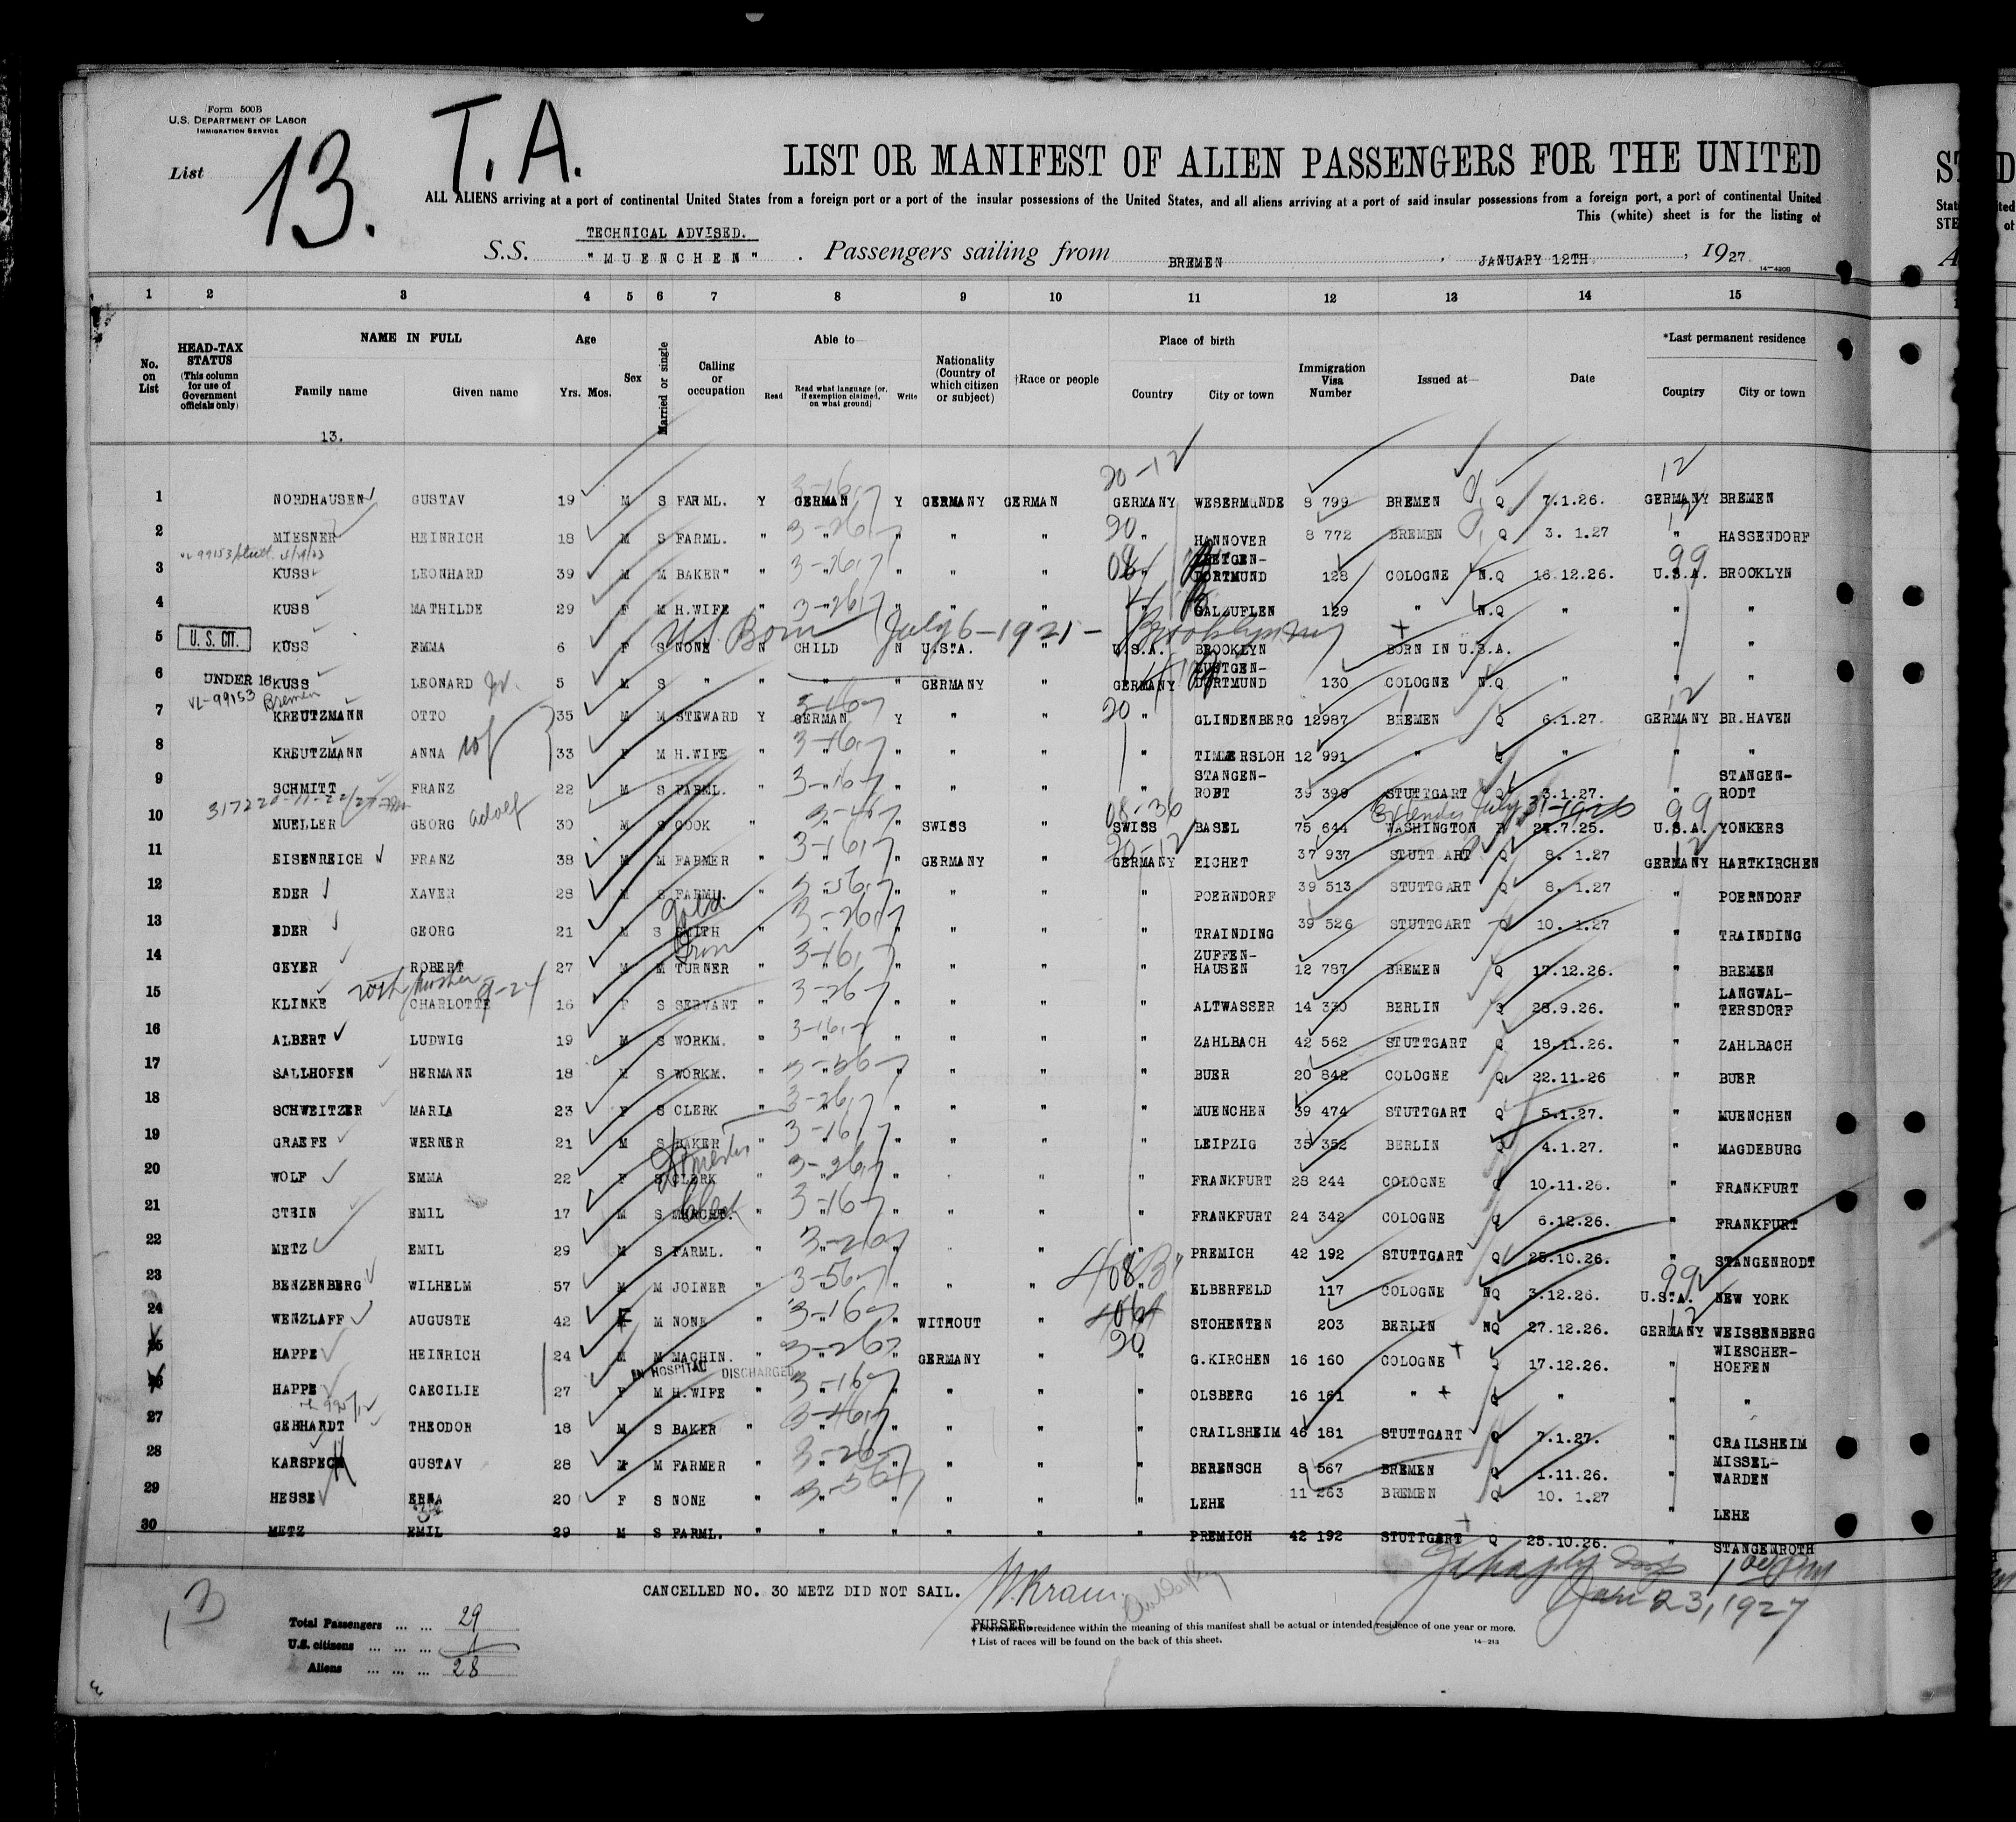 Form 500B
U.S. DEPARTMENT OF LABOR
IMMIGRATION SERVICE
List 13. T.A.
LIST OR MANIFEST OF ALIEN PASSENGERS FOR THE UNITED
ALL ALIENS arriving at a port of continental United States from a foreign port or a port of the insular possessions of the United States, and all aliens arriving at a port of said insular possessions from a foreign port, a port of continental United
This (white) sheet is for the listing of
TECHNICAL ADVISED.
S.S. "MUENCHEN" . Passengers sailing from BREMEN , JANUARY 12TH , 1927
14-4208
1 2 3 4 5 6 7 8 9 10 11 12 13 14 15
No. on List
HEAD-TAX STATUS (This column for use of Government officials only)
NAME IN FULL Family name Given name
Age Yrs. Mos.
Sex
Married or single
Calling or occupation
Able to— Read Read what language (or, if exemption claimed, on what ground) Write
Nationality (Country of which citizen or subject)
†Race or people
Place of birth Country City or town
Immigration Visa Number
Issued at—
Date
*Last permanent residence Country City or town
13.
1 NORDHAUSEN GUSTAV 19 M S FARML. Y GERMAN Y GERMANY GERMAN GERMANY WESERMUNDE 8 799 BREMEN Q 7.1.26. GERMANY BREMEN
2 MIESNER HEINRICH 18 M S FARML. " " " " " " HANNOVER 8 772 BREMEN Q 3. 1.27 " HASSENDORF
3 KUSS LEONHARD 39 M M BAKER" " " " " " " DORTMUND 128 COLOGNE N.Q 16.12.26. U.S.A. BROOKLYN
4 KUSS MATHILDE 29 F M H.WIFE " " " " " SALZUFLEN 129 " N.Q " " "
US Born July 6-1921- Brooklyn NY
5 U.S. CIT. KUSS EMMA 6 F S NONE N CHILD N U.S.A. " U.S.A. BROOKLYN BORN IN U.S.A. " "
6 UNDER 16 KUSS LEONARD Jr. 5 M S " " " " GERMANY " GERMANY LUETGEN-DORTMUND 130 COLOGNE N.Q " " "
VL-99153 Bremen
7 KREUTZMANN OTTO 35 M M STEWARD Y GERMAN Y " " " GLINDENBERG 12987 BREMEN Q 6.1.27. GERMANY BR.HAVEN
8 KREUTZMANN ANNA 33 F M H.WIFE " " " " " TIMMERSLOH 12 991 " Q " " "
9 SCHMITT FRANZ 22 M S FARML. " " " " " STANGEN-RODT 39 390 STUTTGART Q 3.1.27. " STANGEN-RODT
10 MUELLER GEORG Adolf 30 M S COOK " " " SWISS " SWISS BASEL 75 644 WASHINGTON 27.7.25. U.S.A. YONKERS
11 EISENREICH FRANZ 38 M M FARMER " " " GERMANY " GERMANY EICHET 37 937 STUTTGART Q 8. 1.27 GERMANY HARTKIRCHEN
12 EDER XAVER 28 M S FARML. " " " " " " POERNDORF 39 513 STUTTGART Q 8. 1.27 " POERNDORF
13 EDER GEORG 21 M S SMITH " " " " " " TRAINDING 39 526 STUTTGART Q 10. 1.27 " TRAINDING
14 GEYER ROBERT 27 M M Iron TURNER " " " " " " ZUFFEN-HAUSEN 12 787 BREMEN Q 17.12.26. " BREMEN
15 KLINKE CHARLOTTE 16 F S SERVANT " " " " " " ALTWASSER 14 330 BERLIN Q 28.9.26. " LANGWAL-TERSDORF
16 ALBERT LUDWIG 19 M S WORKM. " " " " " " ZAHLBACH 42 562 STUTTGART Q 18.11.26. " ZAHLBACH
17 SALLHOFEN HERMANN 18 M S WORKM. " " " " " " BUER 20 842 COLOGNE Q 22.11.26 " BUER
18 SCHWEITZER MARIA 23 F S CLERK " " " " " " MUENCHEN 39 474 STUTTGART Q 5.1.27. " MUENCHEN
19 GRAEFE WERNER 21 M S BAKER " " " " " " LEIPZIG 35 352 BERLIN Q 4.1.27. " MAGDEBURG
20 WOLF EMMA 22 F S CLERK " " " " " " FRANKFURT 28 244 COLOGNE Q 10.11.26. " FRANKFURT
21 STEIN EMIL 17 M S MERCHT. " " " " " " FRANKFURT 24 342 COLOGNE Q 6.12.26. " FRANKFURT
22 METZ EMIL 29 M S FARML. " " " " " " PREMICH 42 192 STUTTGART Q 25.10.26. " STANGENRODT
23 BENZENBERG WILHELM 57 M M JOINER " " " " " " ELBERFELD 117 COLOGNE NQ 3.12.26. U.S.A. NEW YORK
24 WENZLAFF AUGUSTE 42 F M NONE " " " WITHOUT " " STOHENTEN 203 BERLIN NQ 27.12.26. GERMANY WEISSENBERG
25 HAPPE HEINRICH 24 M M MACHIN. " " " GERMANY " " G.KIRCHEN 16 160 COLOGNE Q 17.12.26. " WIESCHER-HOEFEN
IN HOSPITAL DISCHARGED
26 HAPPE CAECILIE 27 F M H.WIFE " " " " " " OLSBERG 16 161 " Q " " "
27 GEBHARDT THEODOR 18 M S BAKER " " " " " " CRAILSHEIM 46 181 STUTTGART Q 7.1.27. " CRAILSHEIM
28 KARSPECK GUSTAV 28 M M FARMER " " " " " " BERENSCH 8 567 BREMEN Q 1.11.26. " MISSEL-WARDEN
29 HESSE ERNA 20 F S NONE " " " " " " LEHE 11 263 BREMEN Q 10. 1.27 " LEHE
30 METZ EMIL 29 M S FARML. " " " " " " PREMICH 42 192 STUTTGART Q 25.10.26. " STANGENROTH
CANCELLED NO. 30 METZ DID NOT SAIL.
Jan 23, 1927
PURSER.
* Permanent residence within the meaning of this manifest shall be actual or intended residence of one year or more.
† List of races will be found on the back of this sheet.
14-213
Total Passengers ... ... 29
U.S. citizens ... ... ... 1
Aliens ... ... ... 28